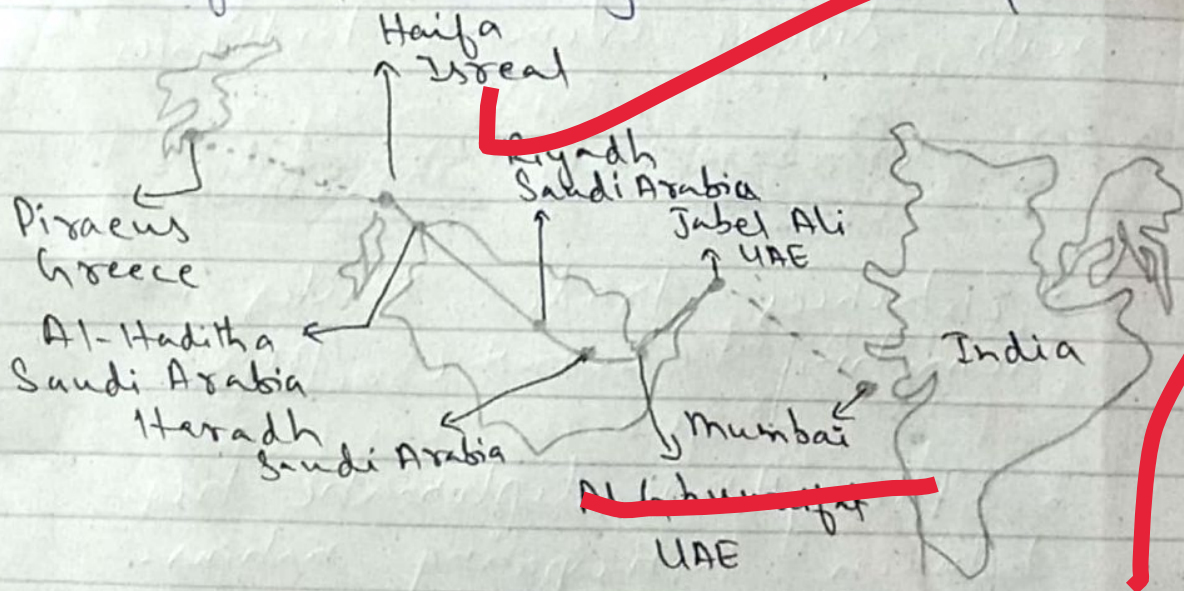 Haifa
Isreal
Riyadh
Saudi Arabia
Jabel Ali
UAE
Piraeus
Greece
Al-Haditha
Saudi Arabia
Haradh
Saudi Arabia
India
Mumbai
UAE